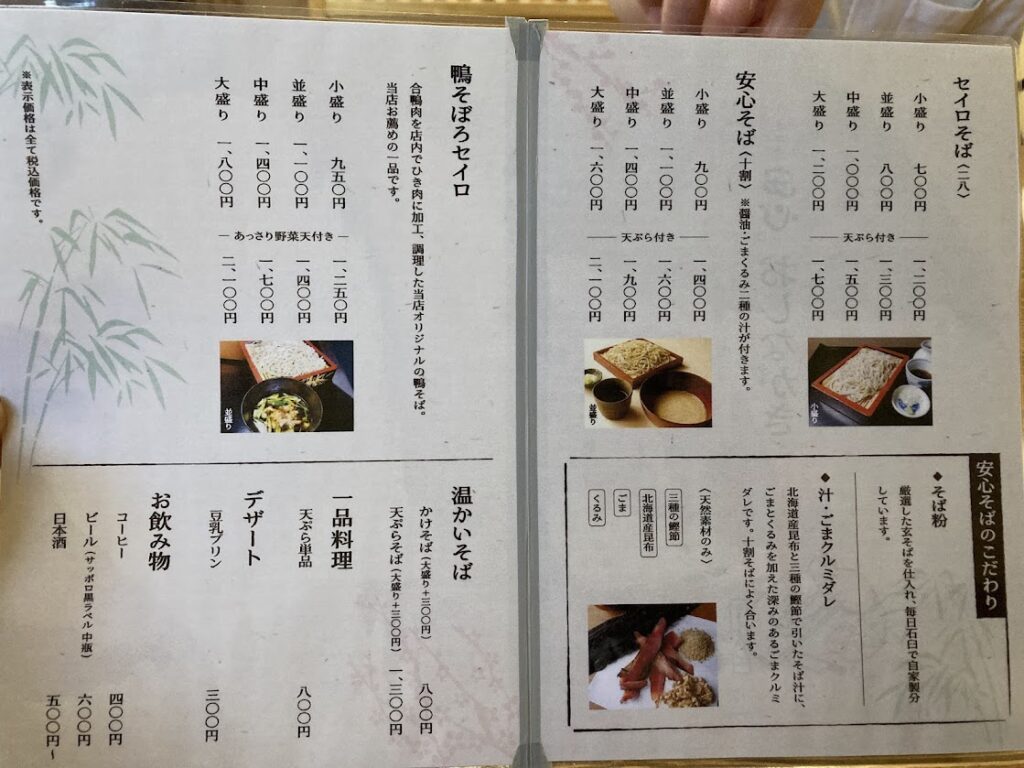 セイロそば〈二八〉
小盛り 七〇〇円
並盛り 八〇〇円
中盛り 一、〇〇〇円
大盛り 一、二〇〇円
天ぷら付き
一、二〇〇円
一、三〇〇円
一、五〇〇円
一、七〇〇円
小盛り
安心そば〈十割〉 ※醤油・ごまくるみ二種の汁が付きます。
小盛り 九〇〇円
並盛り 一、一〇〇円
中盛り 一、四〇〇円
大盛り 一、六〇〇円
天ぷら付き
一、四〇〇円
一、六〇〇円
一、九〇〇円
二、一〇〇円
並盛り
安心そばのこだわり
◆そば粉
厳選した玄そばを仕入れ、毎日石臼で自家製分
しています。
◆汁・ごまクルミダレ
北海道産昆布と三種の鰹節で引いたそば汁に、
ごまとくるみを加えた深みのあるごまクルミ
ダレです。十割そばによく合います。
〈天然素材のみ〉
三種の鰹節
北海道産昆布
ごま
くるみ
鴨そぼろセイロ
合鴨肉を店内でひき肉に加工、調理した当店オリジナルの鴨そば。
当店お薦めの一品です。
小盛り 九五〇円
並盛り 一、一〇〇円
中盛り 一、四〇〇円
大盛り 一、八〇〇円
あっさり野菜天付き
一、二五〇円
一、四〇〇円
一、七〇〇円
二、一〇〇円
並盛り
※表示価格は全て税込価格です。
温かいそば
かけそば(大盛り+三〇〇円) 八〇〇円
天ぷらそば(大盛り+三〇〇円) 一、三〇〇円
一品料理
天ぷら単品 八〇〇円
デザート
豆乳プリン 三〇〇円
お飲み物
コーヒー 四〇〇円
ビール(サッポロ黒ラベル 中瓶) 六〇〇円
日本酒 五〇〇円〜